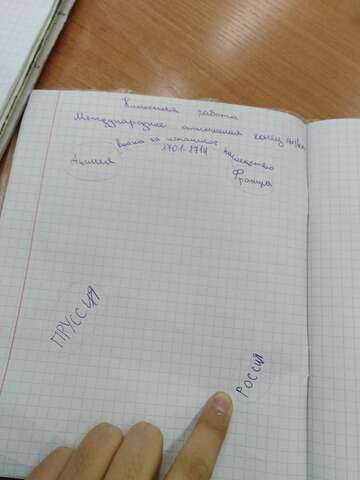 Классная работа
Международные отношения конец
Война за испанское наследство
1701-1714
Англия
Франция
ПРУССИЯ
РОССИЯ